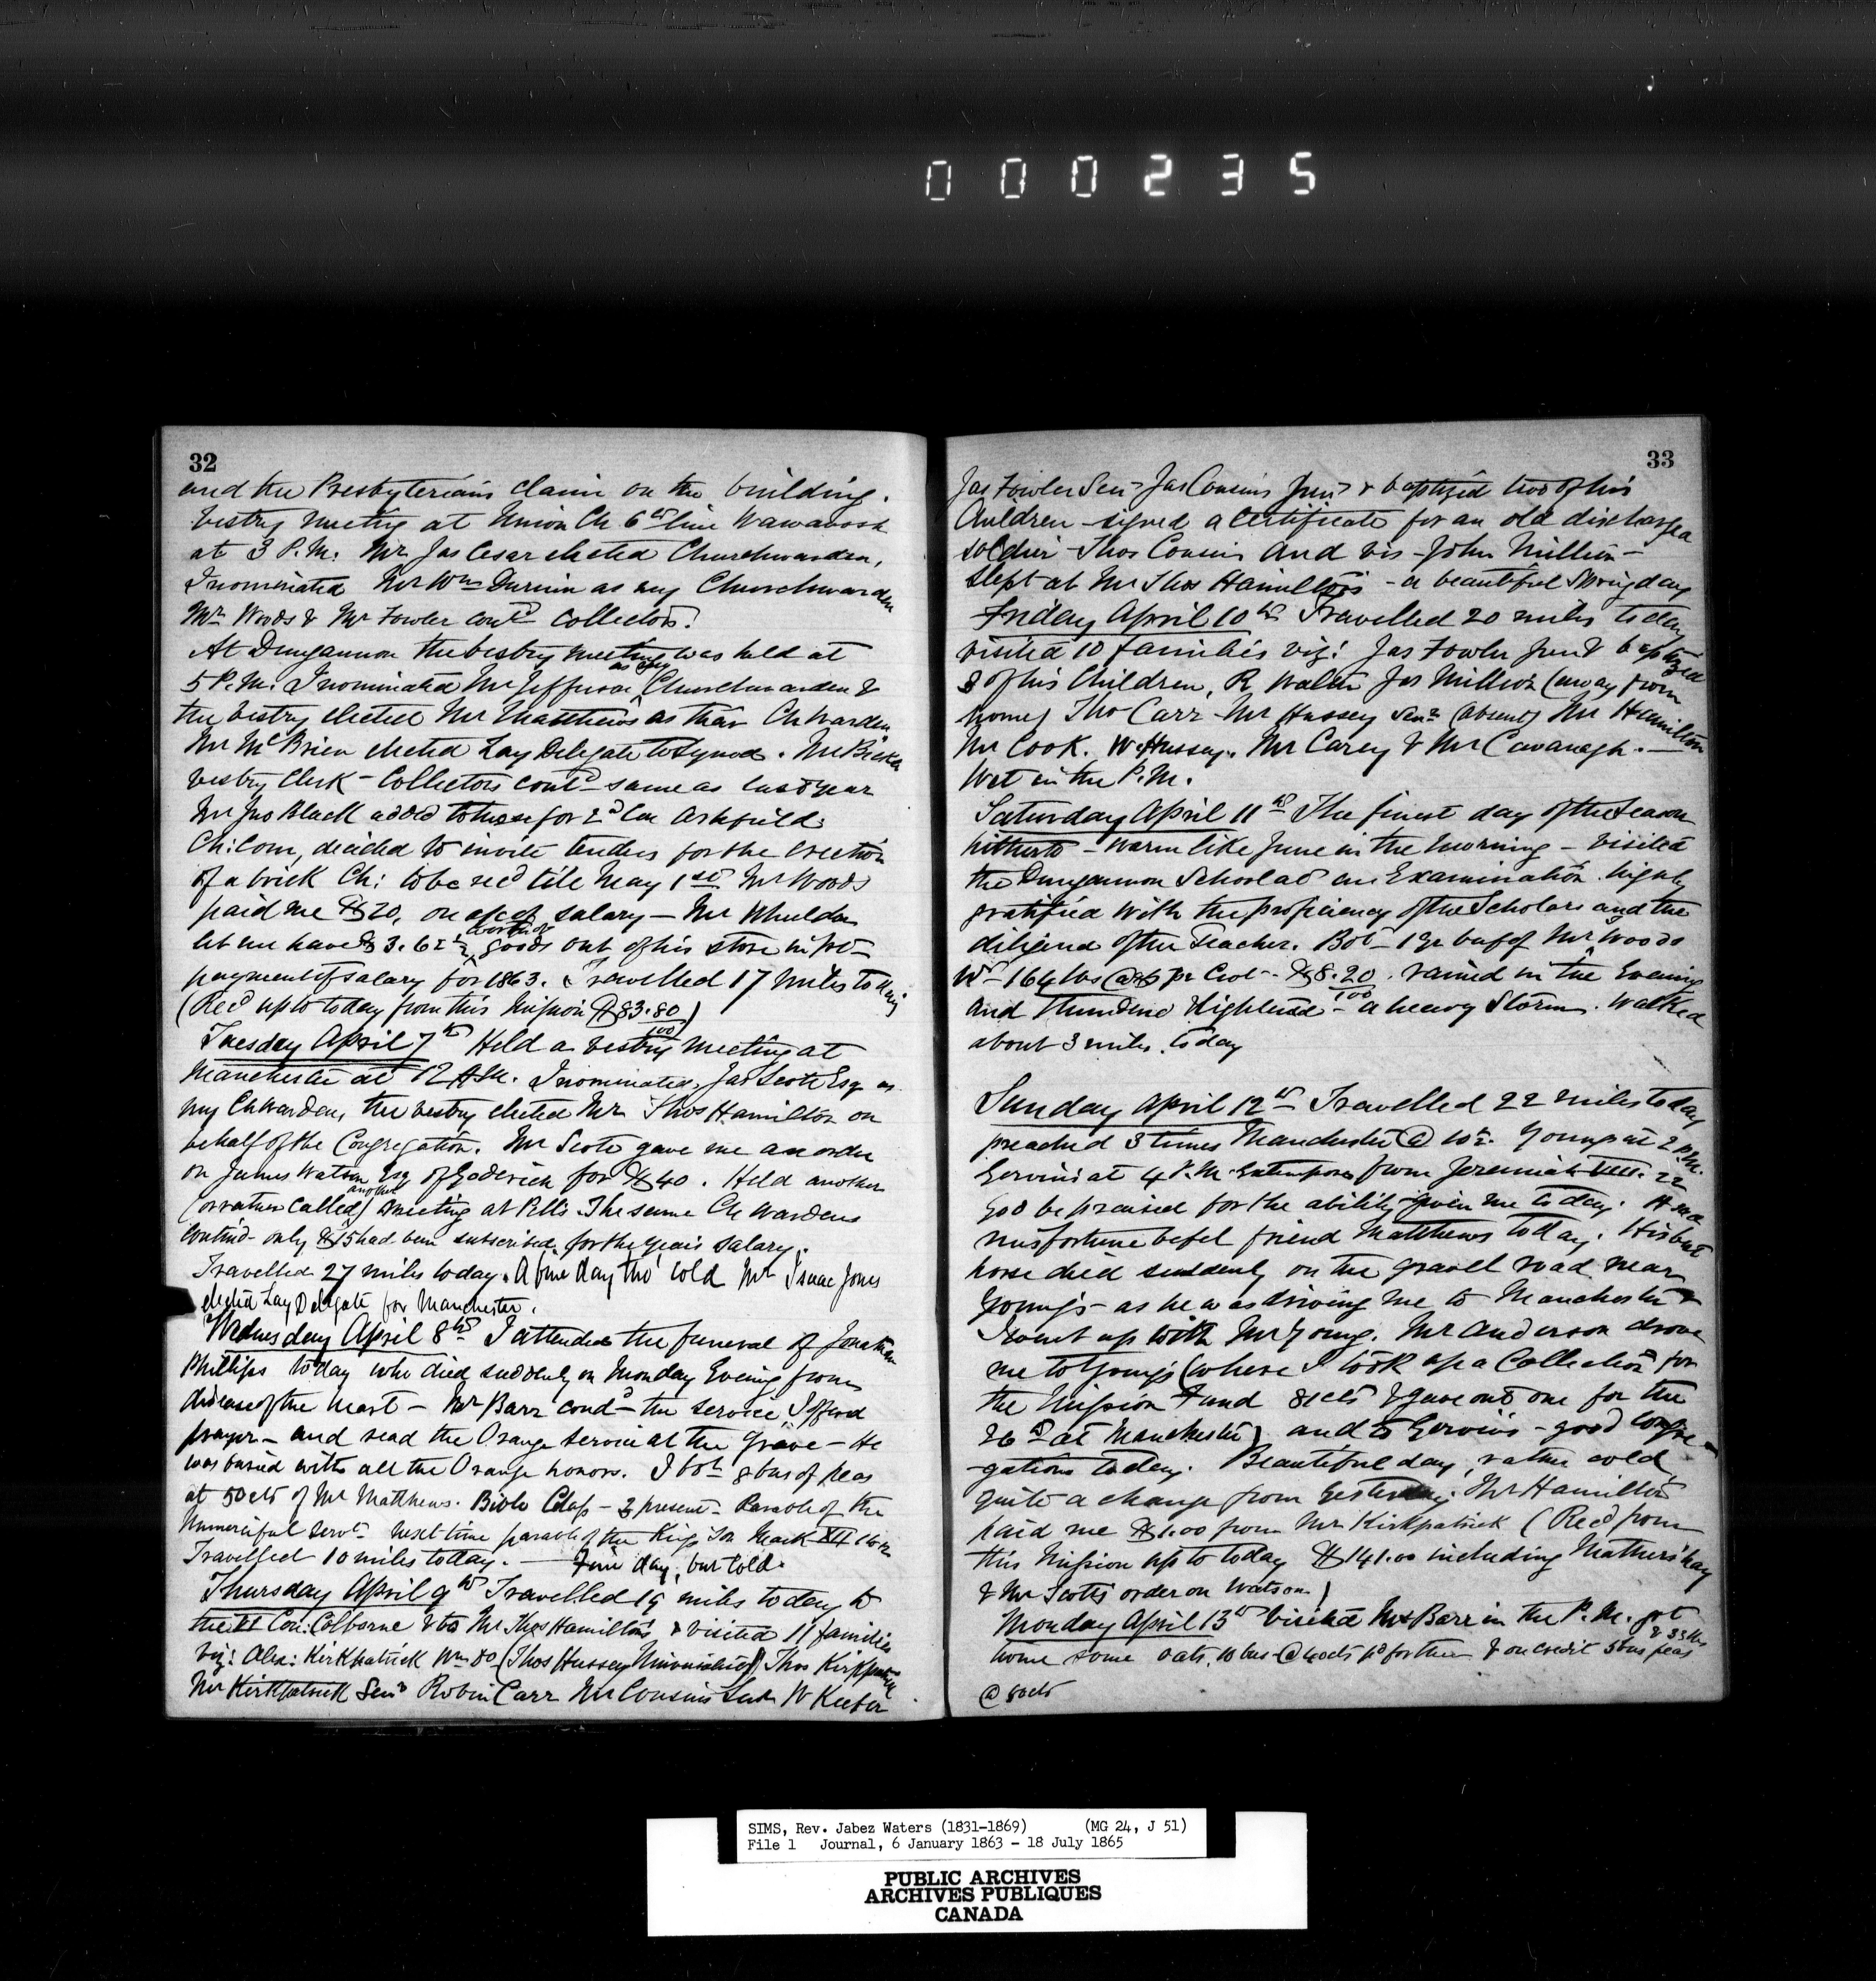 000235
32
and the Presbyterians claim on the building.
Vestry meeting at Union Ch 6th line Wawanosh
at 3 P.M. Mr Jas Cesar elected Churchwarden,
I nominated Mr Wm Durnin as my Churchwarden
Mr Woods & Mr Fowler contd collectors.
At Dungannon the vestry meeting was held at
5 P.M. I nominated Mr Jefferson as my Churchwarden &
the vestry elected Mr Matthews as their Ch Warden
Mr McBrien elected Lay Delegate to Synod.
Vestry Clerk - Collectors contd same as last year
Mr Jno Black added to those for 2d Con Ashfield.
Ch: Com, decided to invite tenders for the erection
of a brick Ch: to be recd till May 1st Mr Woods
paid me $20, on a/c of salary - Mr Whelden
let me have $3.62½ worth of goods out of his store in
payment of salary for 1863. Travelled 17 miles today
(Recd up to today from this Mission $83.80/100)
Tuesday April 7th Held a vestry meeting at
Manchester at 12 A.M. I nominated, Jas Scott Esq as
my Ch Warden, the vestry elected Mr Thos Hamilton on
behalf of the Congregation. Mr Scott gave me an order
on James Watson Esq of Goderich for $40. Held another
(or rather called) another meeting at Pells The same Ch Wardens
contind - only $15 had been subscribed for the years salary.
Travelled 27 miles today. A fine day tho' cold Mr Isaac Jones
elected Lay Delegate for Manchester.
Wednesday April 8th I attended the funeral of Jonathan
Phillips today who died suddenly on Monday Evening from
disease of the heart - Mr Barr condd the service, I offered
prayer - and read the Orange Service at the Grave - He
was buried with all the Orange honors. I bot 8 bus of peas
at 50cts of Mr Matthews. Bible Class - 3 present - Parable of the
Unmerciful Servt - next time parable of the Kings Son
Travelled 10 miles today. — Fine day, but cold.
Thursday April 9th Travelled 19 miles today to
the VI Con: Colborne & to Mr Thos Hamiltons & visited 11 families
viz: Alex: Kirkpatrick Wm Do (Thos Hussey Universalist) Thos Kirkpatrick
Mr Kirkpatrick Senr Robin Carr Mr Cousins Senr W Keefer
33
Jas Fowler Senr Jas Cousins Junr & baptized two of his
Children - signed a certificate for an old discharged
soldier - Thos Cousins and vis - John Million -
slept at Mr Thos Hamiltons - a beautiful Spring day
Friday April 10th Travelled 20 miles today
visited 10 families viz: Jas Fowler Junr & baptized
3 of his Children, R Walsh Jos Million (away from
home) Tho Carr - Mr Hussey Senr (absent) Mr Hamilton
Mr Cook. W Hussey. Mr Carey & Mr Cavanagh. —
Wet in the P.M.
Saturday April 11th The finest day of the Season
hitherto - warm like June in the morning - visited
the Dungannon School at an Examination. highly
gratified with the proficiency of the Scholars and the
diligence of the Teacher. Bot - 1 qr beef of Mr Woods
Wt - 164 lbs @ $5 pr Cwt - $8.20/100. rained in the Evening
and Thundered & lightened - a heavy Storm. Walked
about 3 miles today
Sunday April 12th Travelled 22 miles today
preached 3 times Manchester @ 10½. Youngs at 2 P.M.
Gervins at 4 P.M. Extempore from Jeremiah VIII. 22
God be praised for the ability given me today. A sad
misfortune befel friend Matthews today. His best
horse died suddenly on the gravel road near
Youngs - as he was driving me to Manchester &
I went up with Mr Young. Mr Anderson drove
me to Youngs (where I took up a Collection for
the Mission Fund 81cts & gave out one for the
26th at Manchester) and to Gervins - good congre-
-gations today. Beautiful day, rather cold
quite a change from yesterday. Mr Hamilton
paid me $1.00 from Mr Kirkpatrick (Recd from
this Mission up to today $141.00 including Mathers' hay
& Mr Scotts order on Watson)
Monday April 13th Visited Mr Barr in the P.M. got
home some oats, 10 bus & 33 lbs @ 40cts pd for them & on credit 5 bus peas
@ 50cts
SIMS, Rev. Jabez Waters (1831-1869) (MG 24, J 51)
File 1 Journal, 6 January 1863 - 18 July 1865
PUBLIC ARCHIVES
ARCHIVES PUBLIQUES
CANADA